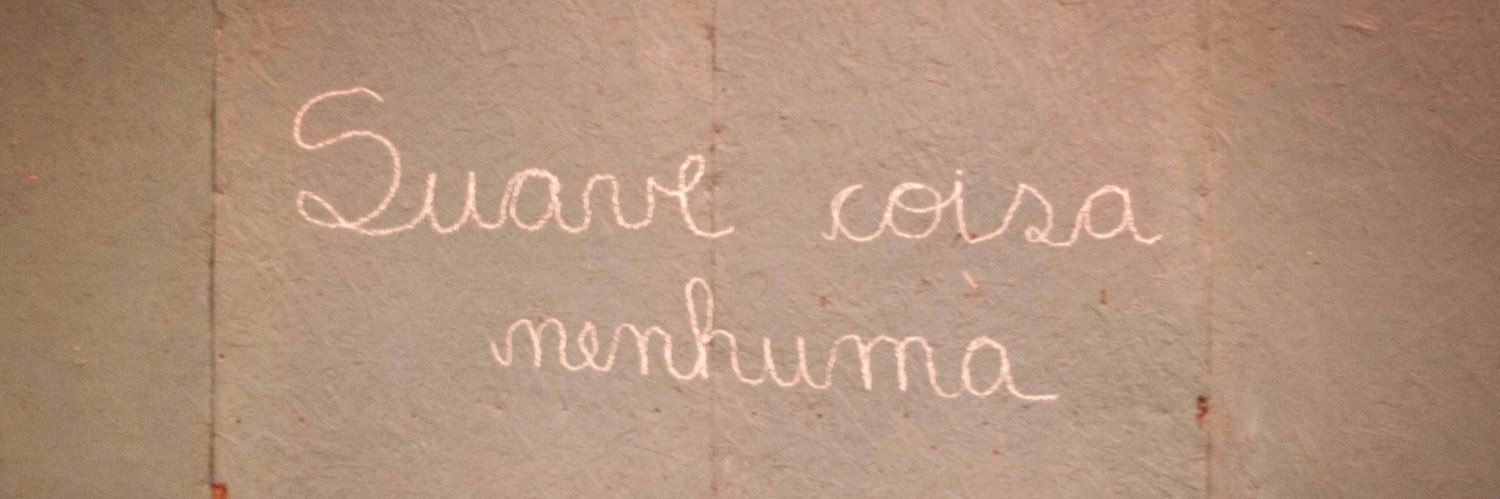 Suave coisa
nenhuma